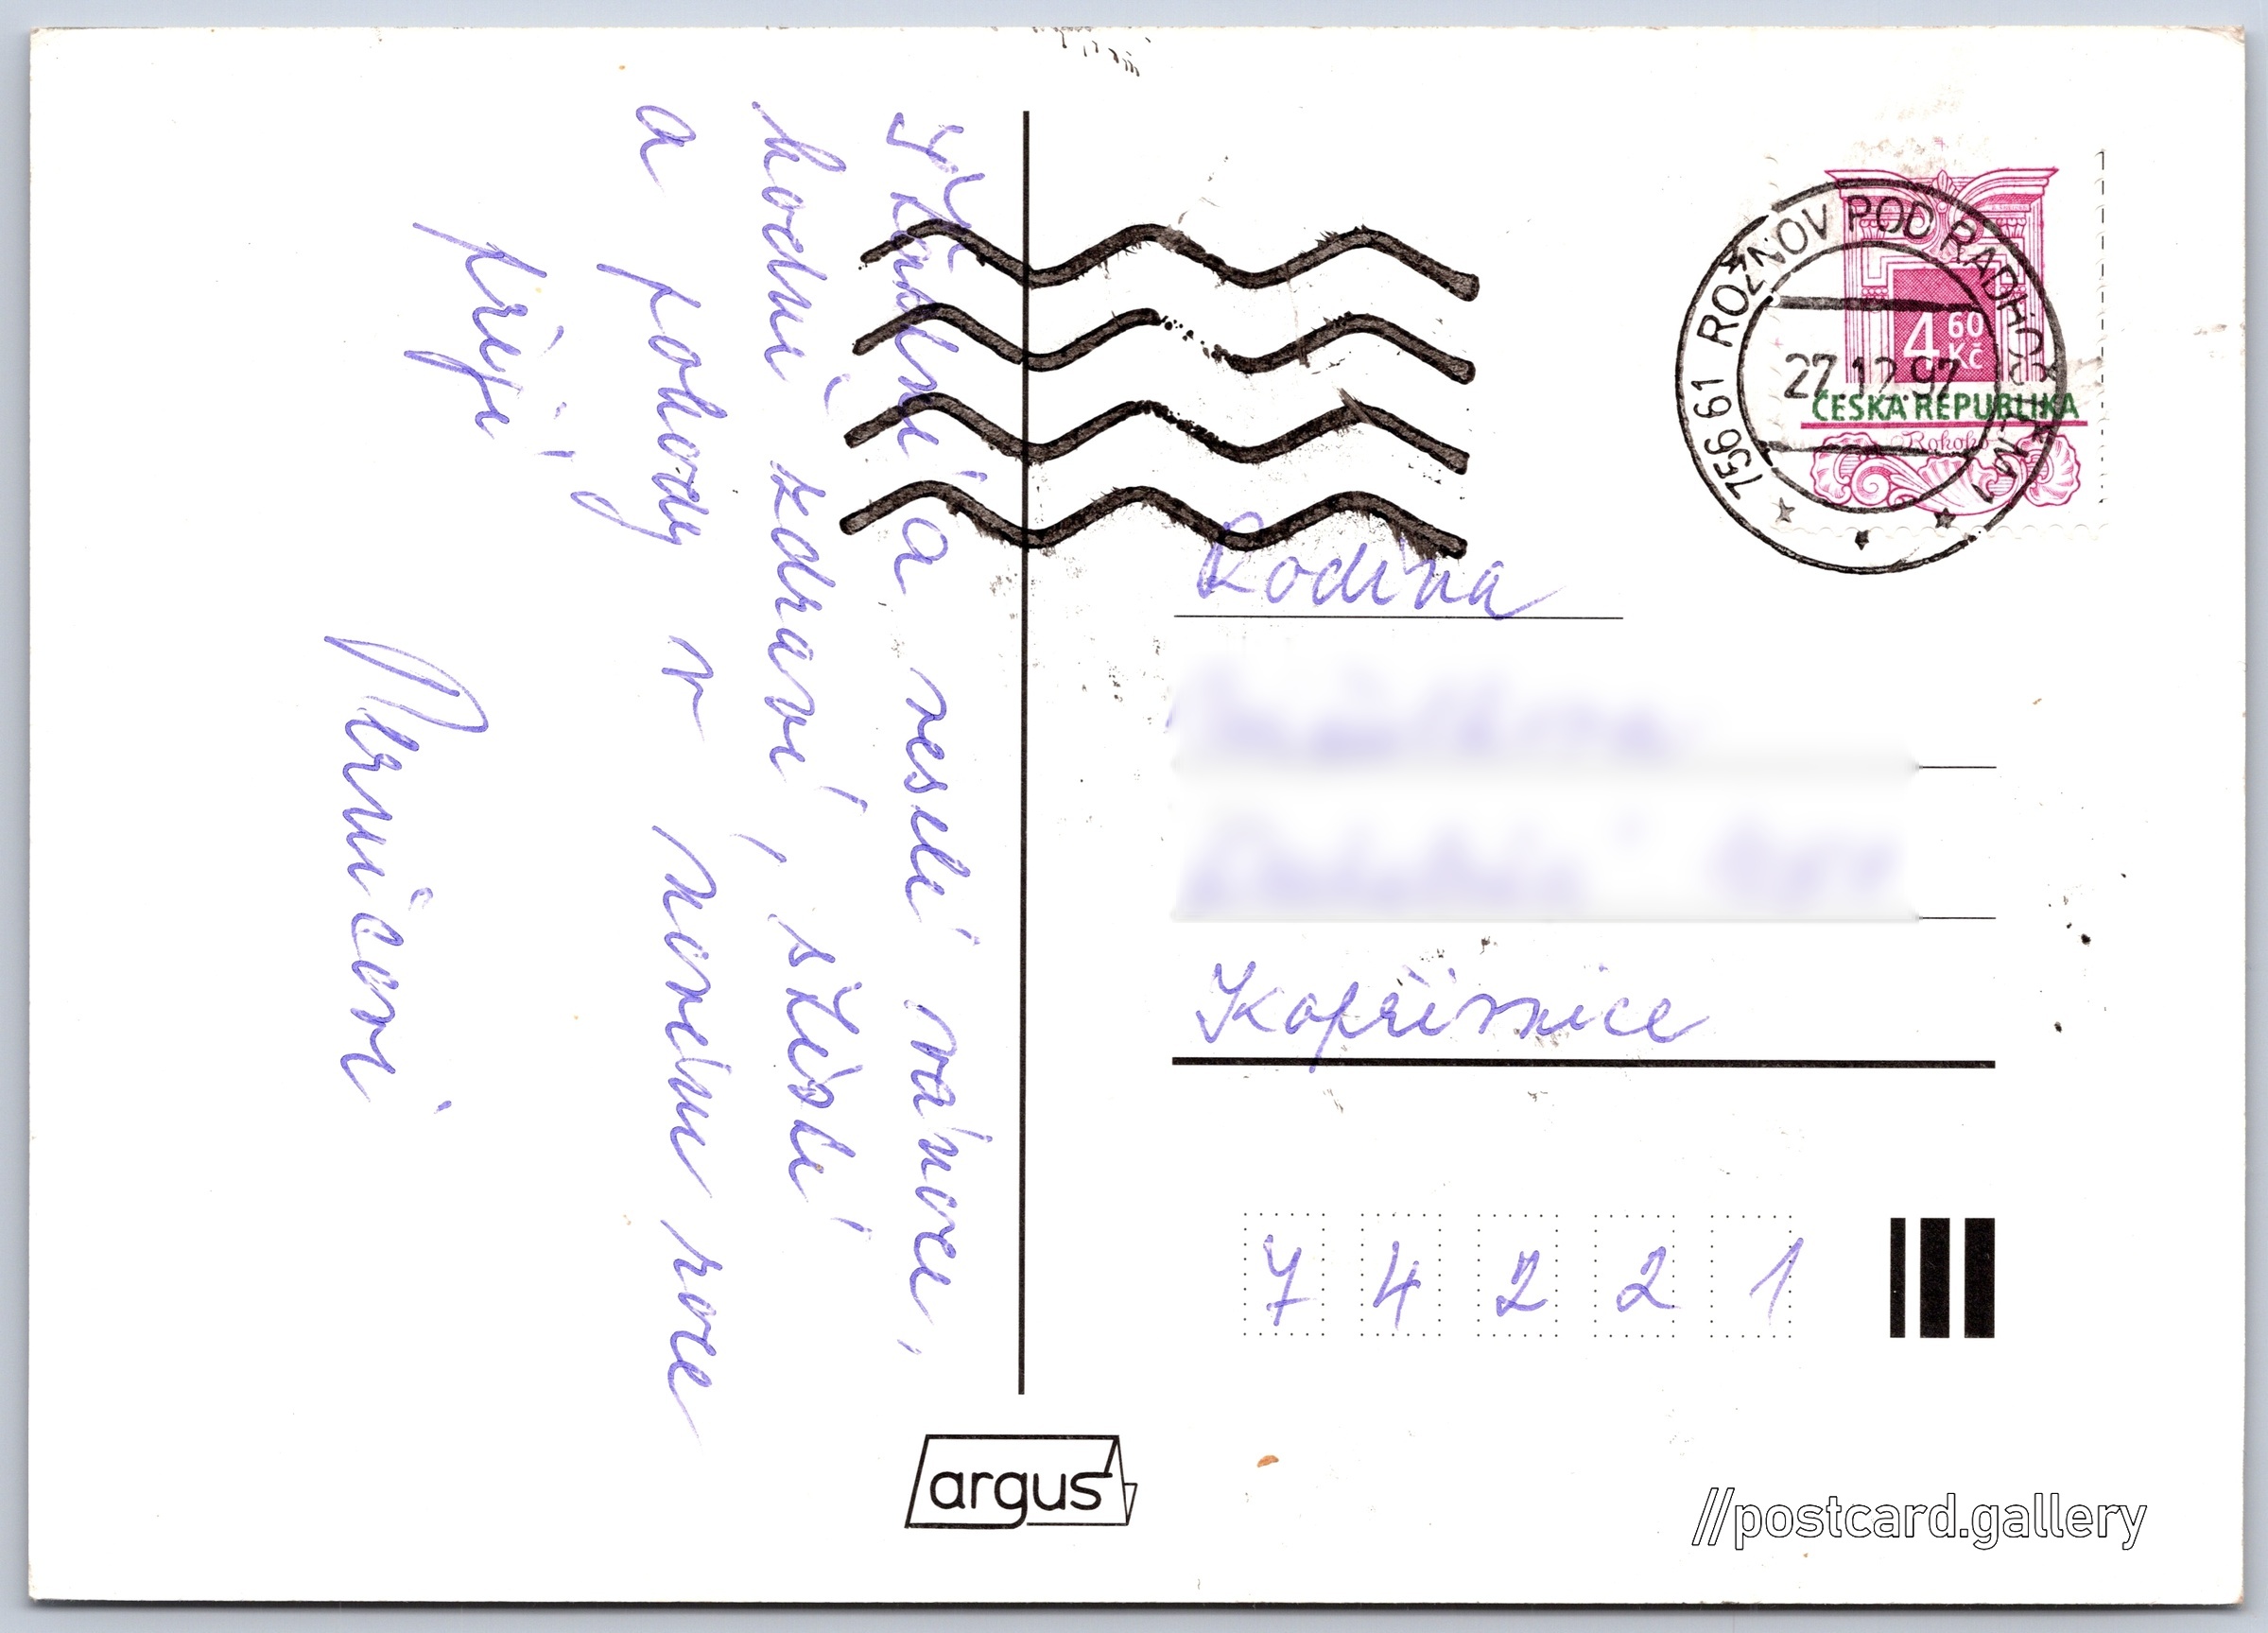 Šťastné a veselé vánoce,
hodně zdraví, štěstí
a pohody v novém roce
přejí
756 61 ROŽNOV POD RADHOŠTĚM 1
27.12.97
4 60 Kč
ČESKÁ REPUBLIKA
Rokoko
Rodina
Kopřivnice
7 4 2 2 1
argus
//postcard.gallery